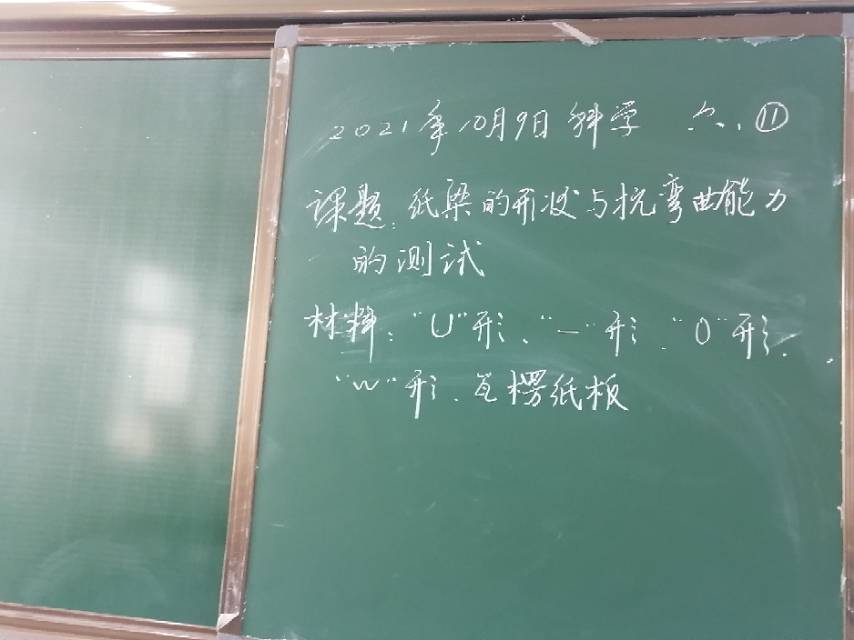 2021年10月9日 科学 六.⑪
课题:纸梁的形状与抗弯曲能力
的测试
材料:"U"形、"一"形、"O"形、
"W"形、瓦楞纸板